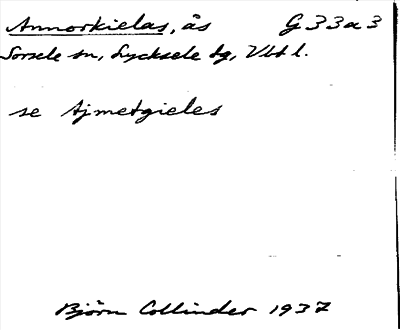 Annorkielas, ås G 33a3
Sorsele sn, Lycksele tg, Vbtl.
se Ajmetgieles
Björn Collinder 1937